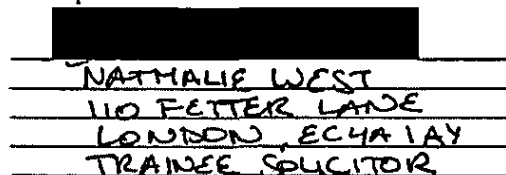 NATHALIE WEST
110 FETTER LANE
LONDON, EC4A 1AY
TRAINEE SOLICITOR